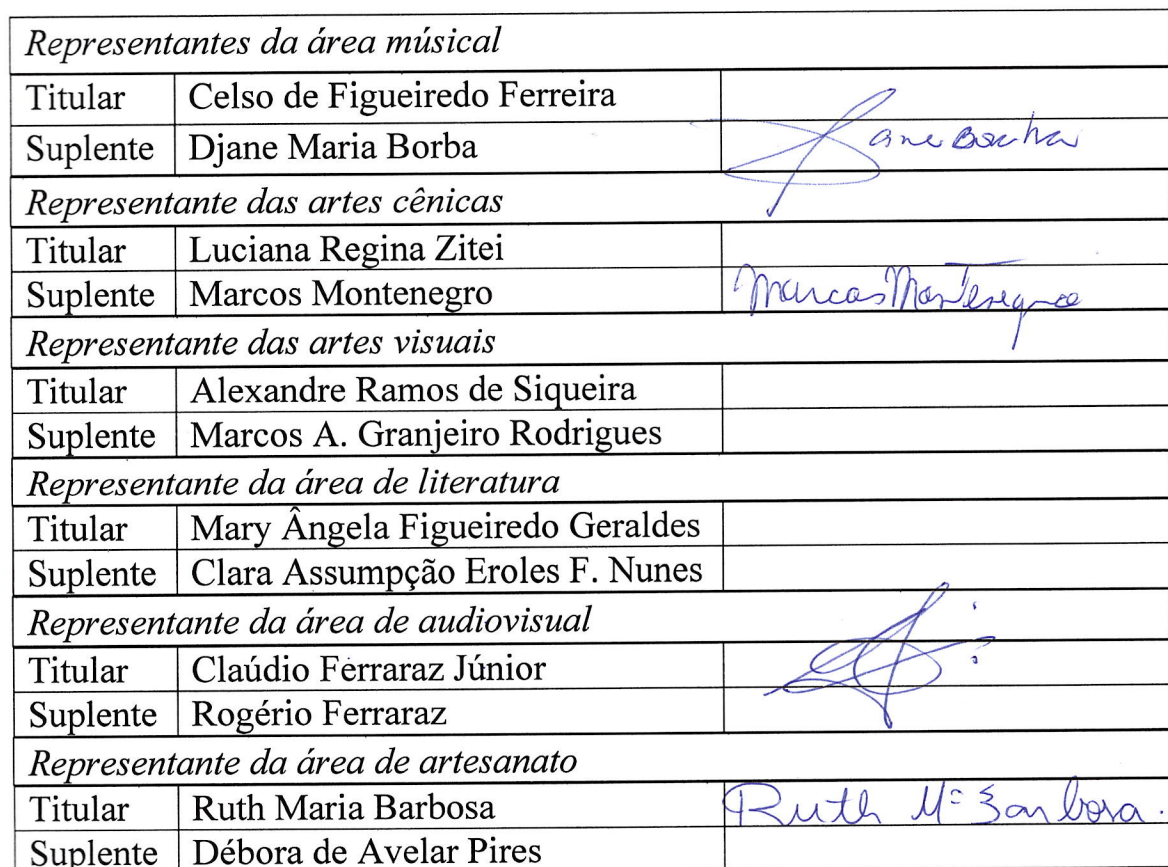 Representantes da área músical
Titular Celso de Figueiredo Ferreira
Suplente Djane Maria Borba
Representante das artes cênicas
Titular Luciana Regina Zitei
Suplente Marcos Montenegro Marcos Montenegro
Representante das artes visuais
Titular Alexandre Ramos de Siqueira
Suplente Marcos A. Granjeiro Rodrigues
Representante da área de literatura
Titular Mary Ângela Figueiredo Geraldes
Suplente Clara Assumpção Eroles F. Nunes
Representante da área de audiovisual
Titular Claúdio Ferraraz Júnior
Suplente Rogério Ferraraz
Representante da área de artesanato
Titular Ruth Maria Barbosa Ruth Mª Barbosa.
Suplente Débora de Avelar Pires